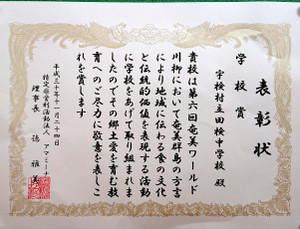 表彰状
学校賞
宇検村立田検中学校 殿
貴校は第六回奄美ワールド
川柳において奄美群島の方言
により地域に伝わる食の文化
と伝統的価値を表現する活動
に学校をあげて取り組まれま
したのでその郷土愛を育む教
育へのご尽力に敬意を表しこ
れを賞します
平成三十年十一月二十四日
特定非営利活動法人 アマミーナ
理事長 徳 雅美